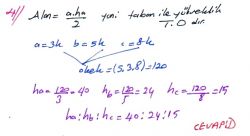 Alan = a.ha/2 yani taban ile yükseklik T.O dır.
a=3k b=5k c=8k
okek=(5,3,8)=120
ha=120/3=40 hb=120/5=24 hc=120/8=15
ha:hb:hc=40:24:15
CEVAP